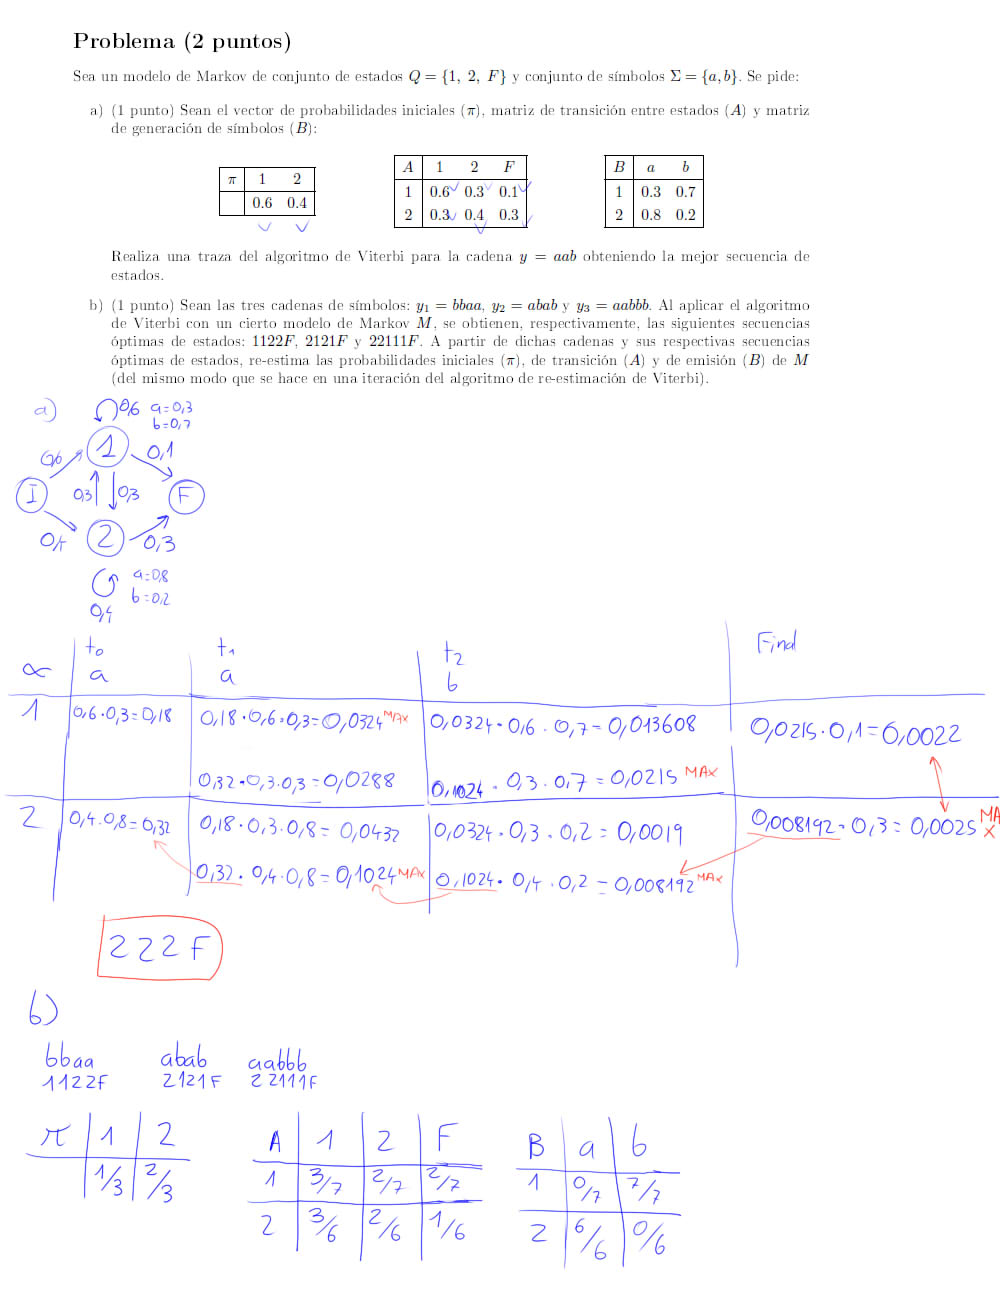 Problema (2 puntos)
Sea un modelo de Markov de conjunto de estados Q = {1, 2, F} y conjunto de símbolos Σ = {a, b}. Se pide:
a) (1 punto) Sean el vector de probabilidades iniciales (π), matriz de transición entre estados (A) y matriz
de generación de símbolos (B):
π 1 2
0.6 0.4
A 1 2 F
1 0.6 0.3 0.1
2 0.3 0.4 0.3
B a b
1 0.3 0.7
2 0.8 0.2
Realiza una traza del algoritmo de Viterbi para la cadena y = aab obteniendo la mejor secuencia de
estados.
b) (1 punto) Sean las tres cadenas de símbolos: y₁ = bbaa, y₂ = abab y y₃ = aabbb. Al aplicar el algoritmo
de Viterbi con un cierto modelo de Markov M, se obtienen, respectivamente, las siguientes secuencias
óptimas de estados: 1122F, 2121F y 22111F. A partir de dichas cadenas y sus respectivas secuencias
óptimas de estados, re-estima las probabilidades iniciales (π), de transición (A) y de emisión (B) de M
(del mismo modo que se hace en una iteración del algoritmo de re-estimación de Viterbi).
a)
0,6 a=0,3
b=0,7
0,6 1 0,1
I 0,3 0,3 F
0,4 2 0,3
a=0,8
b=0,2
0,4
t₀ t₁ t₂ Final
∝ a a b
1 0,6·0,3=0,18 0,18·0,6·0,3=0,0324 MAX 0,0324·0,6·0,7=0,013608 0,0215·0,1=0,0022
0,32·0,3·0,3=0,0288 0,1024·0,3·0,7=0,0215 MAX
2 0,4·0,8=0,32 0,18·0,3·0,8=0,0432 0,0324·0,3·0,2=0,0019 0,008192·0,3=0,0025 MAX
0,32·0,4·0,8=0,1024 MAX 0,1024·0,4·0,2=0,008192 MAX
222F
b)
bbaa abab aabbb
1122F 2121F 22111F
π 1 2
1/3 2/3
A 1 2 F
1 3/7 2/7 2/7
2 3/6 2/6 1/6
B a b
1 0/7 7/7
2 6/6 0/6